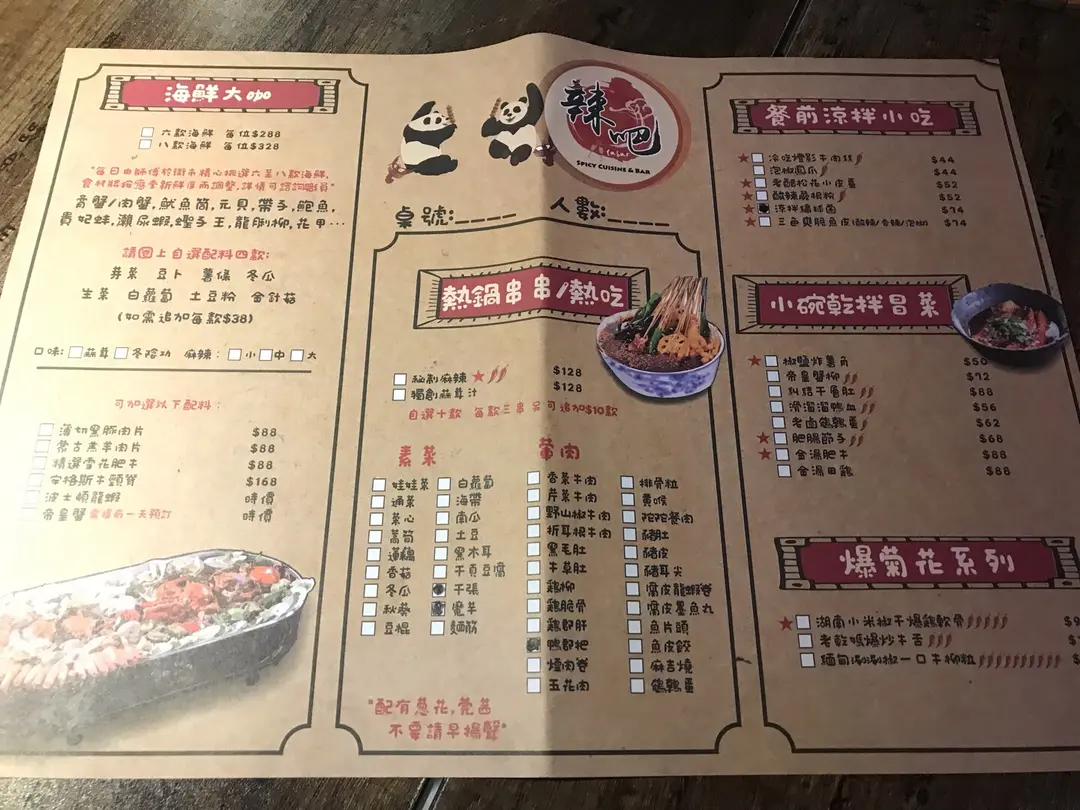 海鮮大咖
六款海鮮 每位$288
八款海鮮 每位$328
"每日由師傅於街市精心挑選六至八款海鮮,
食材將按應季新鮮度而調整,詳情可諮詢職員"
膏蟹/肉蟹,魷魚筒,元貝,帶子,鮑魚,
貴妃蚌,瀨尿蝦,蟶子王,龍脷柳,花甲…
請圈上自選配料四款:
芽菜 豆卜 薯條 冬瓜
生菜 白蘿蔔 土豆粉 金針菇
(如需追加每款$38)
口味: 蒜茸 冬陰功 麻辣: 小 中 大
可加選以下配料:
薄切黑豚肉片 $88
蒙古羔羊肉片 $88
精選雪花肥牛 $88
安格斯牛頸脊 $168
波士頓龍蝦 時價
帝皇蟹 需提前一天預訂 時價
辣吧
SPICY CUISINE & BAR
桌號:____ 人數:____
熱鍋串串/熱吃
秘制麻辣 $128
獨創蒜茸汁 $128
自選十款 每款三串 另可追加$10款
素菜
娃娃菜 白蘿蔔
通菜 海帶
菜心 南瓜
萵筍 土豆
蓮藕 黑木耳
香菇 千頁豆腐
冬瓜 千張
秋葵 魔芋
豆棍 麵筋
葷肉
香菜牛肉 排骨粒
芹菜牛肉 黃喉
野山椒牛肉 陀陀餐肉
折耳根牛肉 豬肚
黑毛肚 豬皮
牛草肚 豬耳尖
鷄柳 腐皮龍蝦卷
鷄脆骨 腐皮墨魚丸
鷄郡肝 魚片頭
鴨郡把 魚皮餃
煙肉卷 麻吉燒
五花肉 鵪鶉蛋
"配有蔥花,芫茜
不要請早揚聲"
餐前涼拌小吃
冷吃燈影牛肉絲 $44
泡椒鳳爪 $44
老醋松花小皮蛋 $52
酸辣蕨根粉 $52
涼拌繡球菌 $74
三色爽脆魚皮(酸辣/香辣/泡椒) $74
小碗乾拌冒菜
椒鹽炸薯角 $50
帝皇蟹柳 $72
糾結千層肚 $88
滑溜溜鴨血 $56
老鹵鵪鶉蛋 $62
肥腸節子 $68
金湯肥牛 $88
金湯田鷄 $88
爆菊花系列
湖南小米椒干爆鷄軟骨
老乾媽爆炒牛舌
緬甸涮涮椒一口牛柳粒